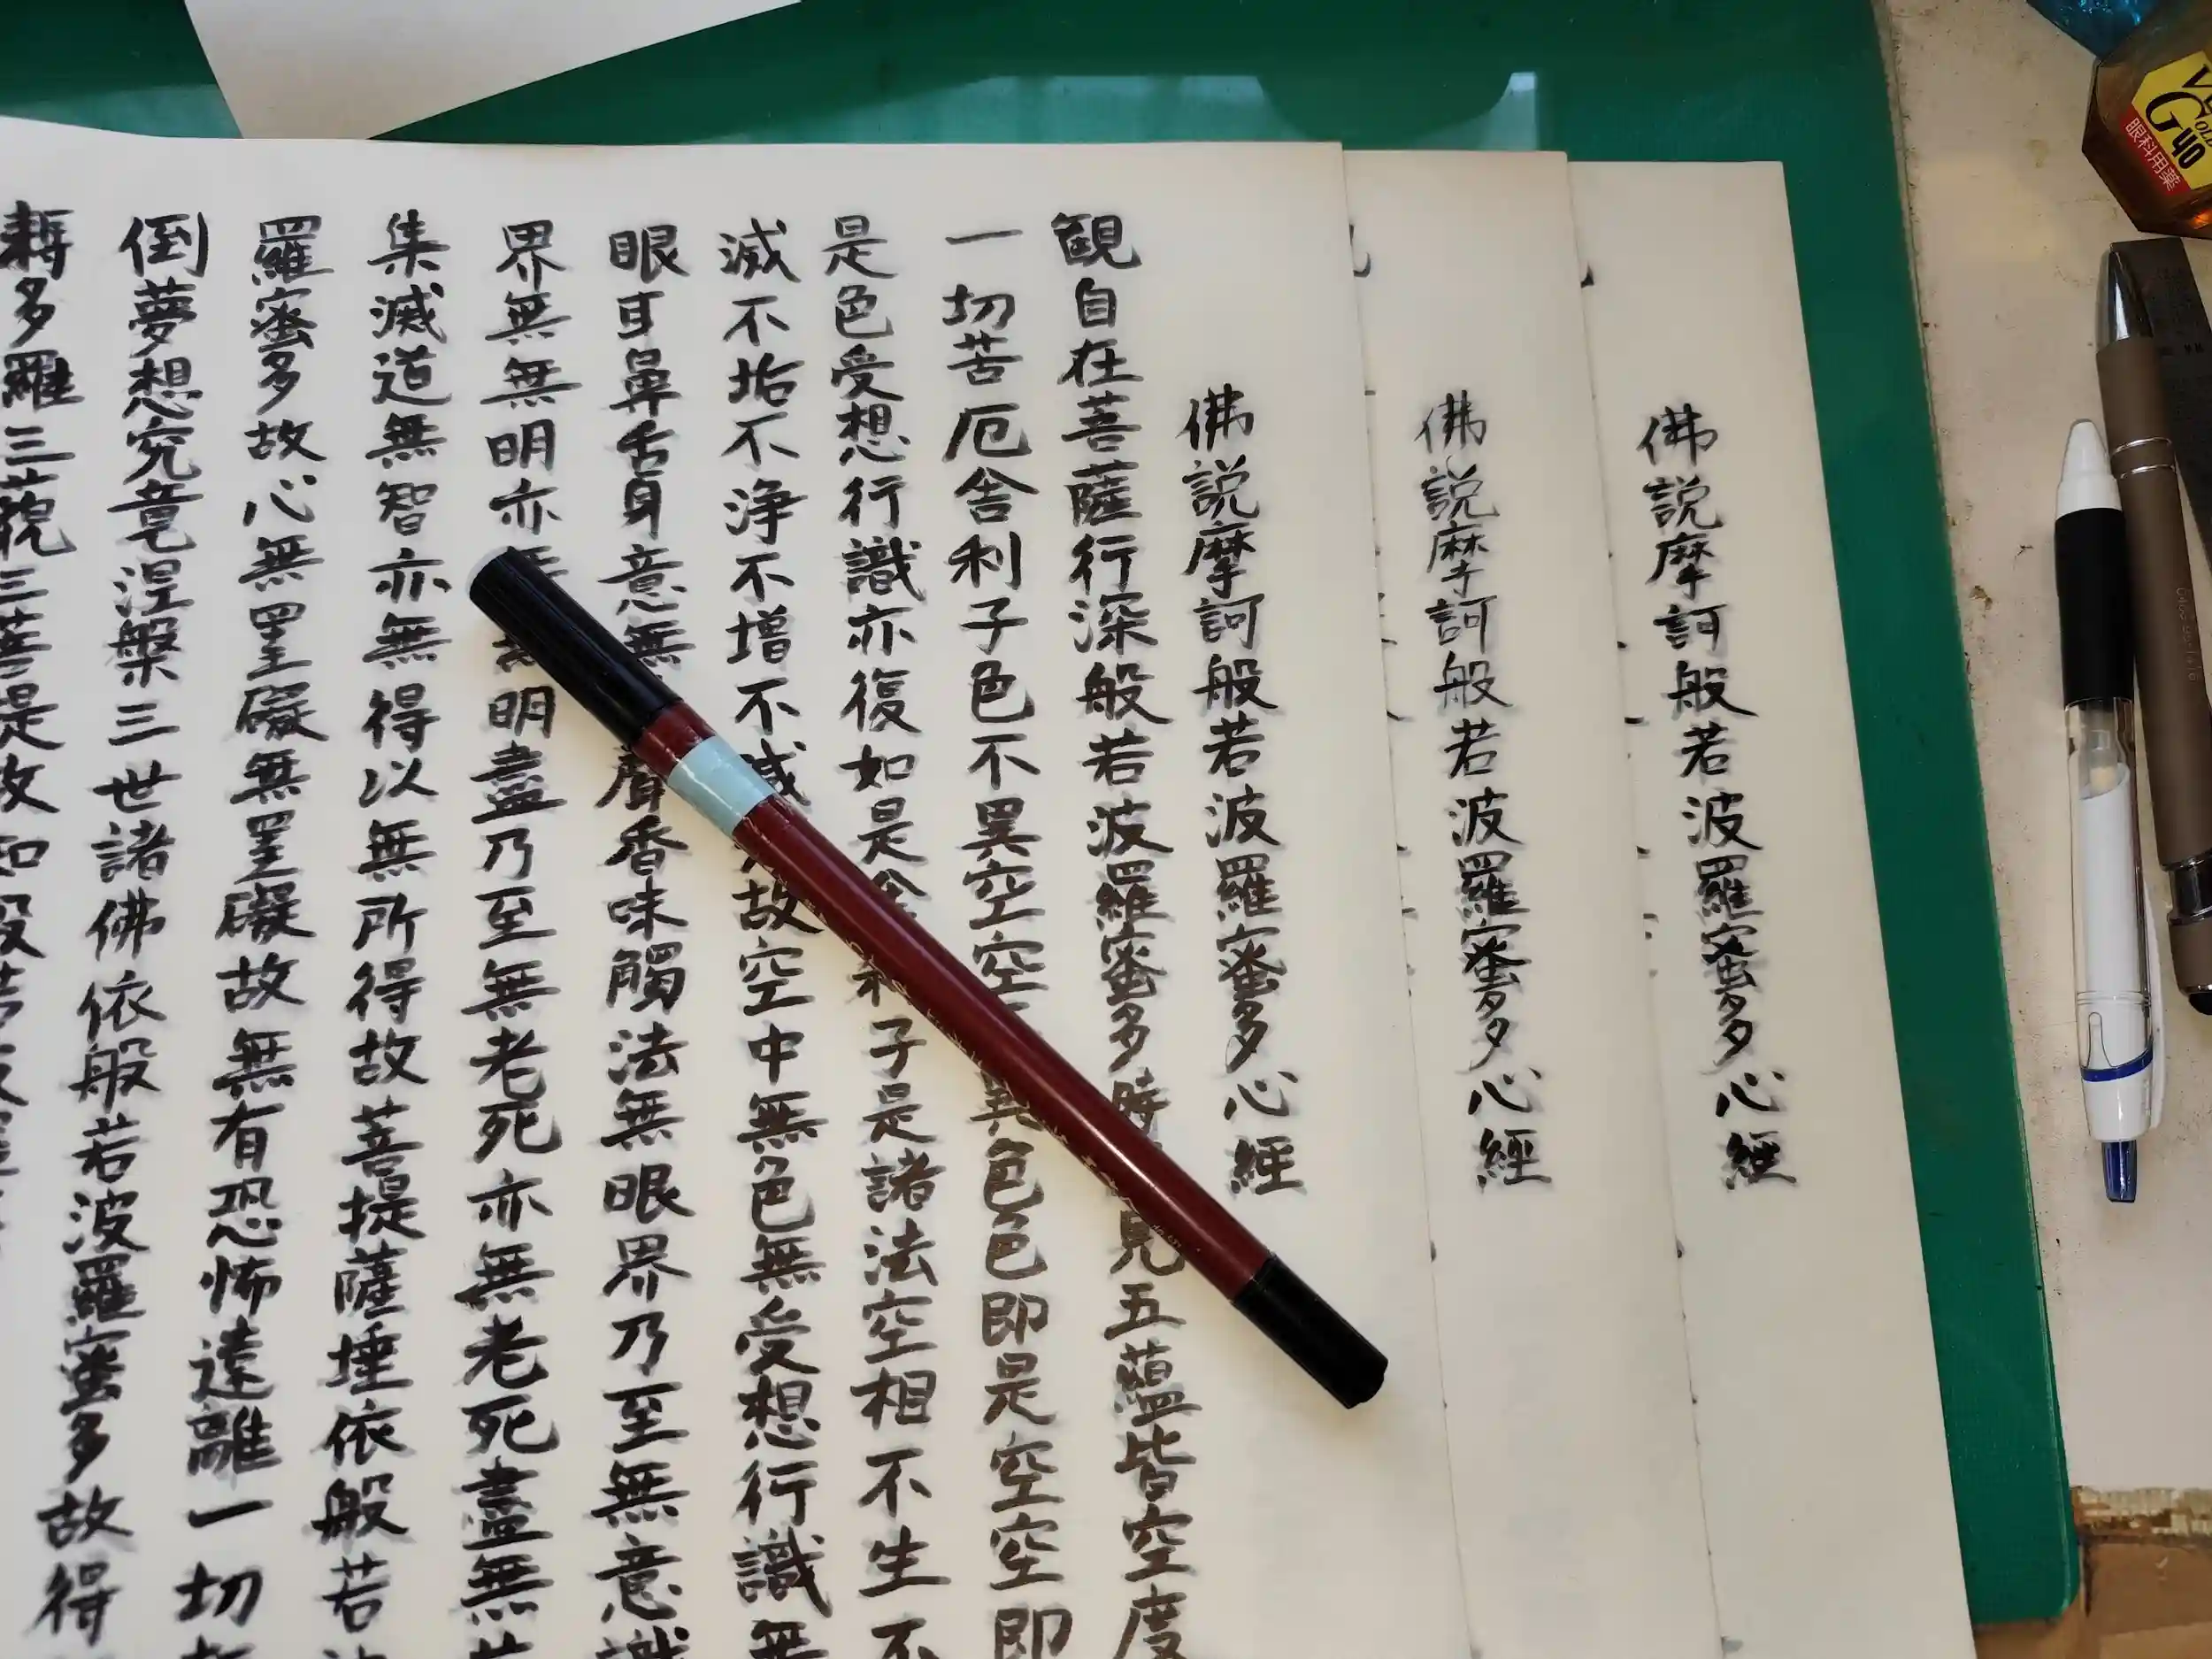 佛説摩訶般若波羅蜜多心經
佛説摩訶般若波羅蜜多心經
佛説摩訶般若波羅蜜多心經
観自在菩薩行深般若波羅蜜多時見五蘊皆空度
一切苦厄舎利子色不異空空異色色即是空空即
是色受想行識亦復如是舎利子是諸法空相不生不
滅不垢不浄不増不減故空中無色無受想行識無
眼耳鼻舌身意無聲香味觸法無眼界乃至無意識
界無無明亦無無明盡乃至無老死亦無老死盡無
集滅道無智亦無得以無所得故菩提薩埵依般若
羅蜜多故心無罣礙無罣礙故無有恐怖遠離一切
倒夢想究竟涅槃三世諸佛依般若波羅蜜多故得
耨多羅三藐三菩提故知般若波羅
眼科用薬
40